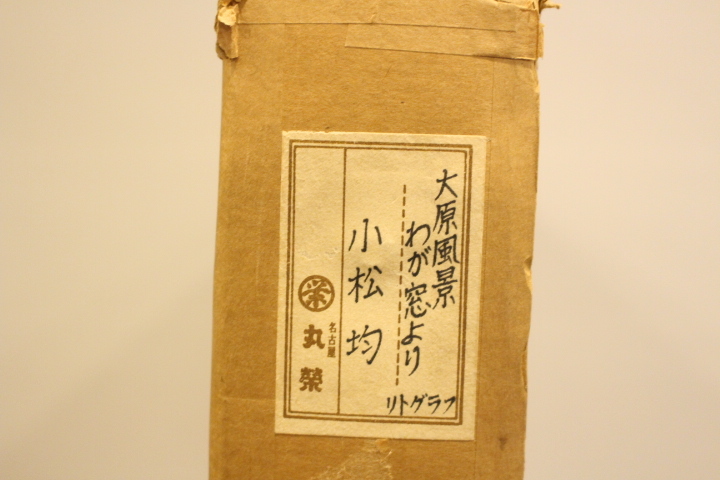 大原風景
わが窓より
リトグラフ
小松均
栄
名古屋
丸榮